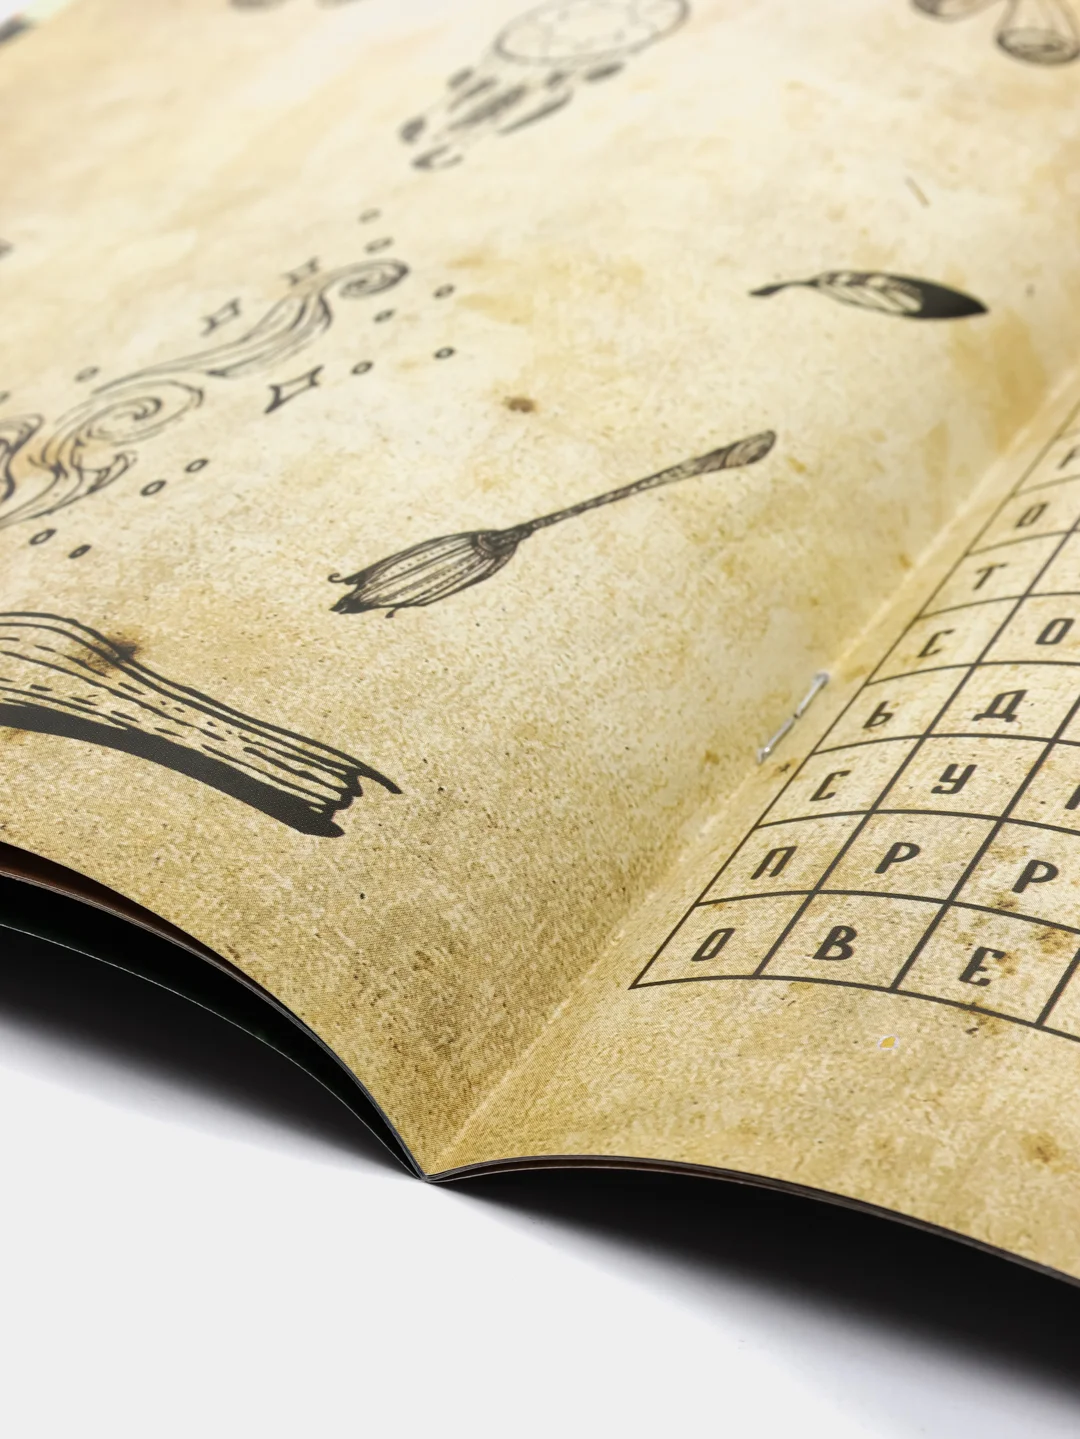 О
Т
С О
Ь Д
С У
П Р Р
О В Е